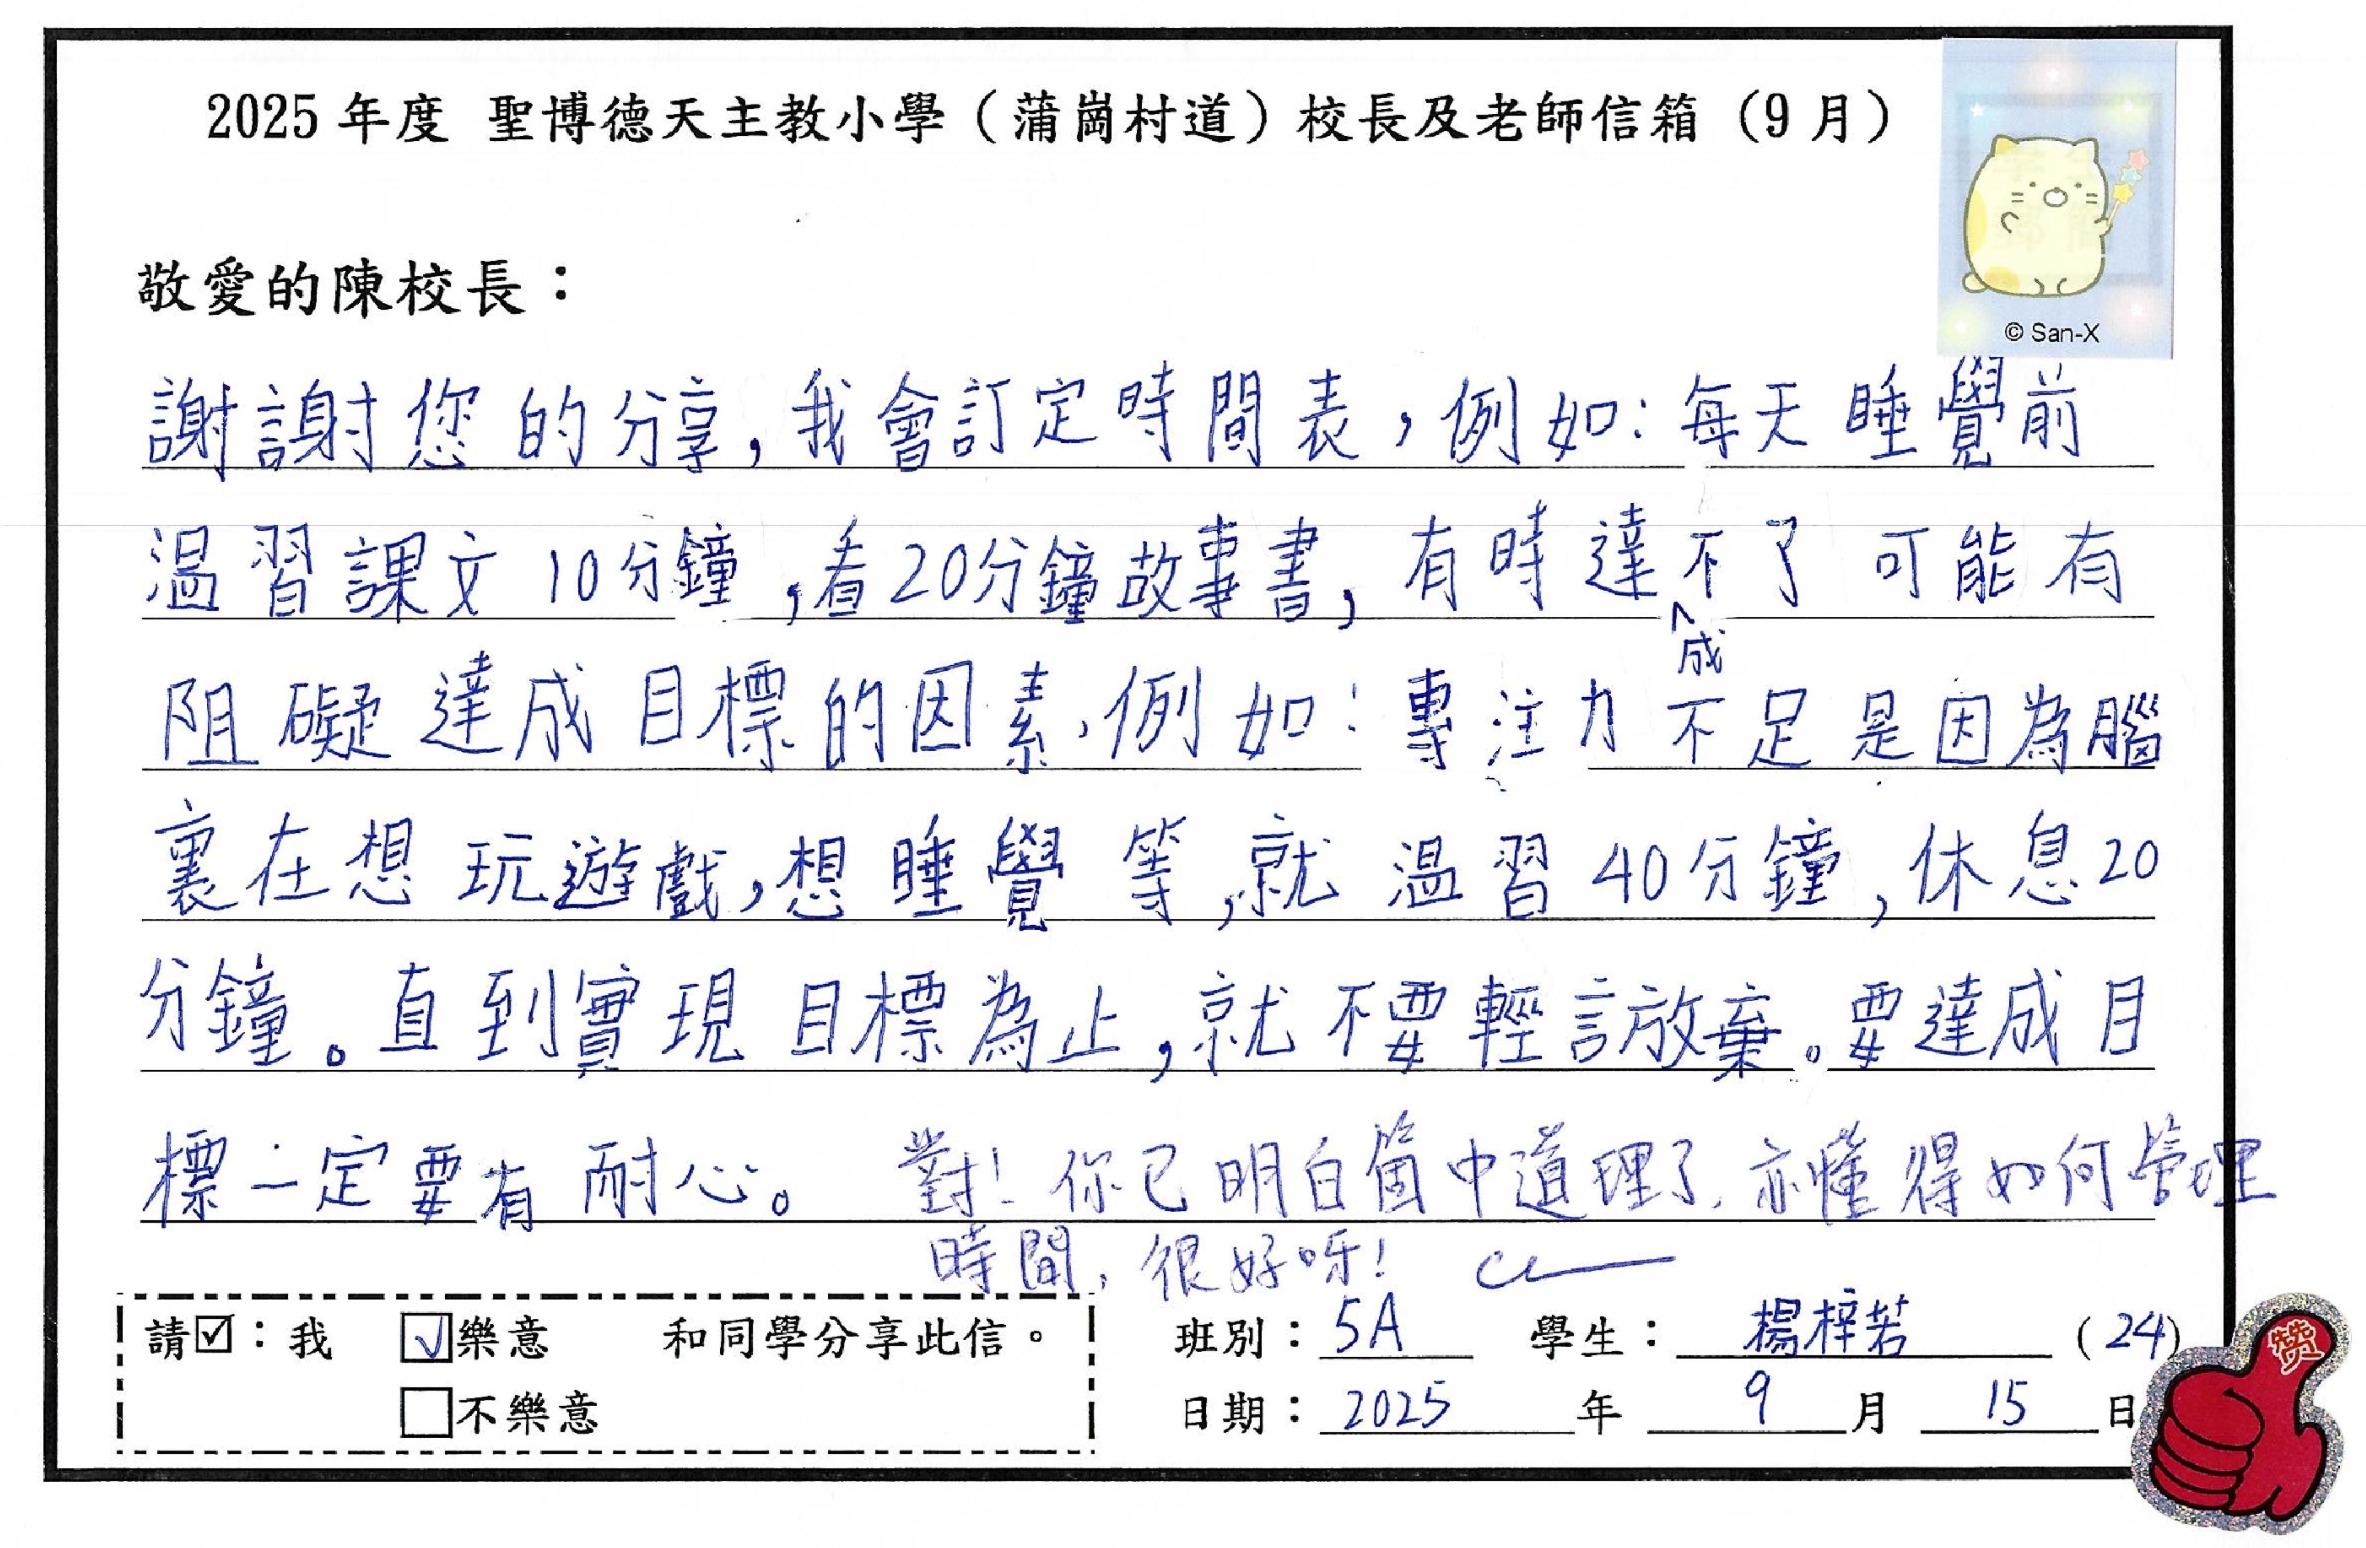 2025 年度 聖博德天主教小學（蒲崗村道）校長及老師信箱（9 月）
© San-X
敬愛的陳校長：
謝謝您的分享，我會訂定時間表，例如：每天睡覺前
温習課文10分鐘，看20分鐘故事書，有時達成不了可能有
阻礙達成目標的因素，例如：專注力不足是因為腦
裏在想玩遊戲，想睡覺等，就温習40分鐘，休息20
分鐘。直到實現目標為止，就不要輕言放棄。要達成目
標一定要有耐心。 對！你已明白箇中道理了，亦懂得如何管理
時間，很好呀！
請☑：我 ☑樂意 和同學分享此信。
□不樂意
班別：5A 學生：楊梓若 (24)
日期：2025 年 9 月 15 日
赞